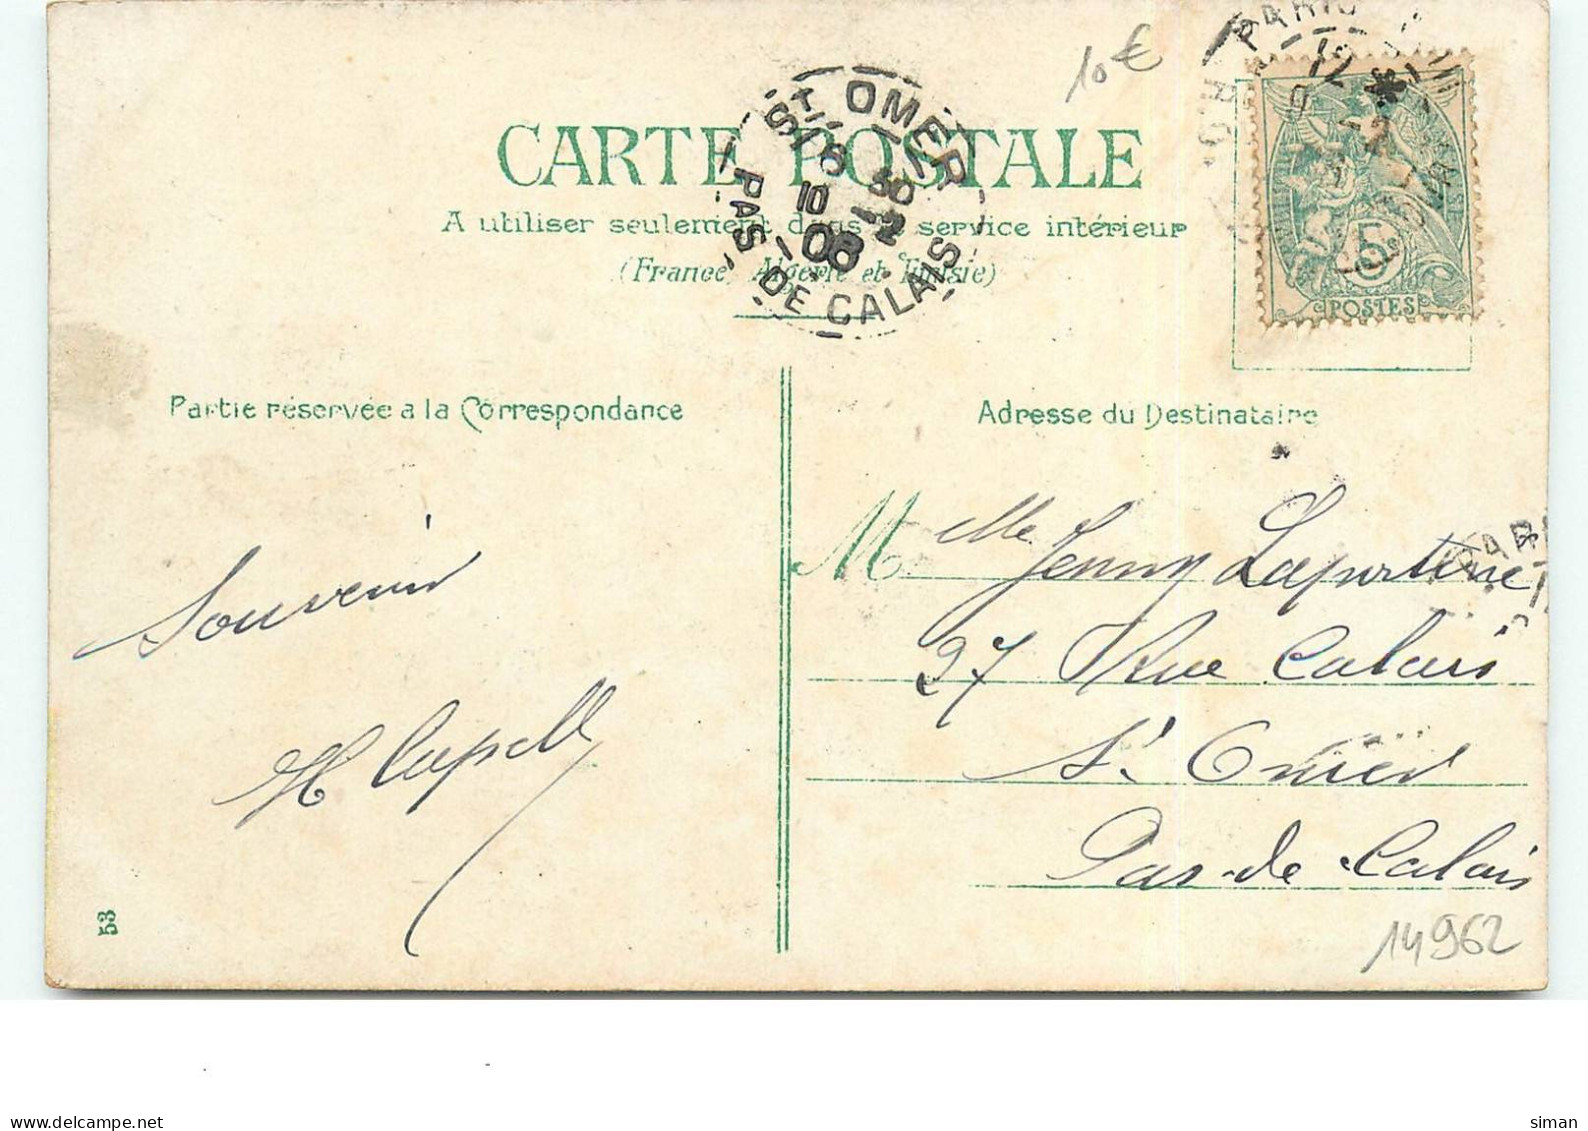 10€
CARTE POSTALE
A utiliser seulement dans le service intérieur
(France, Algérie et Tunisie)
ST OMER
PAS DE CALAIS
10
08
PARIS
5
POSTES
Partie réservée a la Correspondance
Adresse du Destinataire
Souvenir
H Capell
Melle Jenny Lapartine
27 Rue Calais
St. Omer
Pas-de-Calais
53
14962
delcampe.net
siman